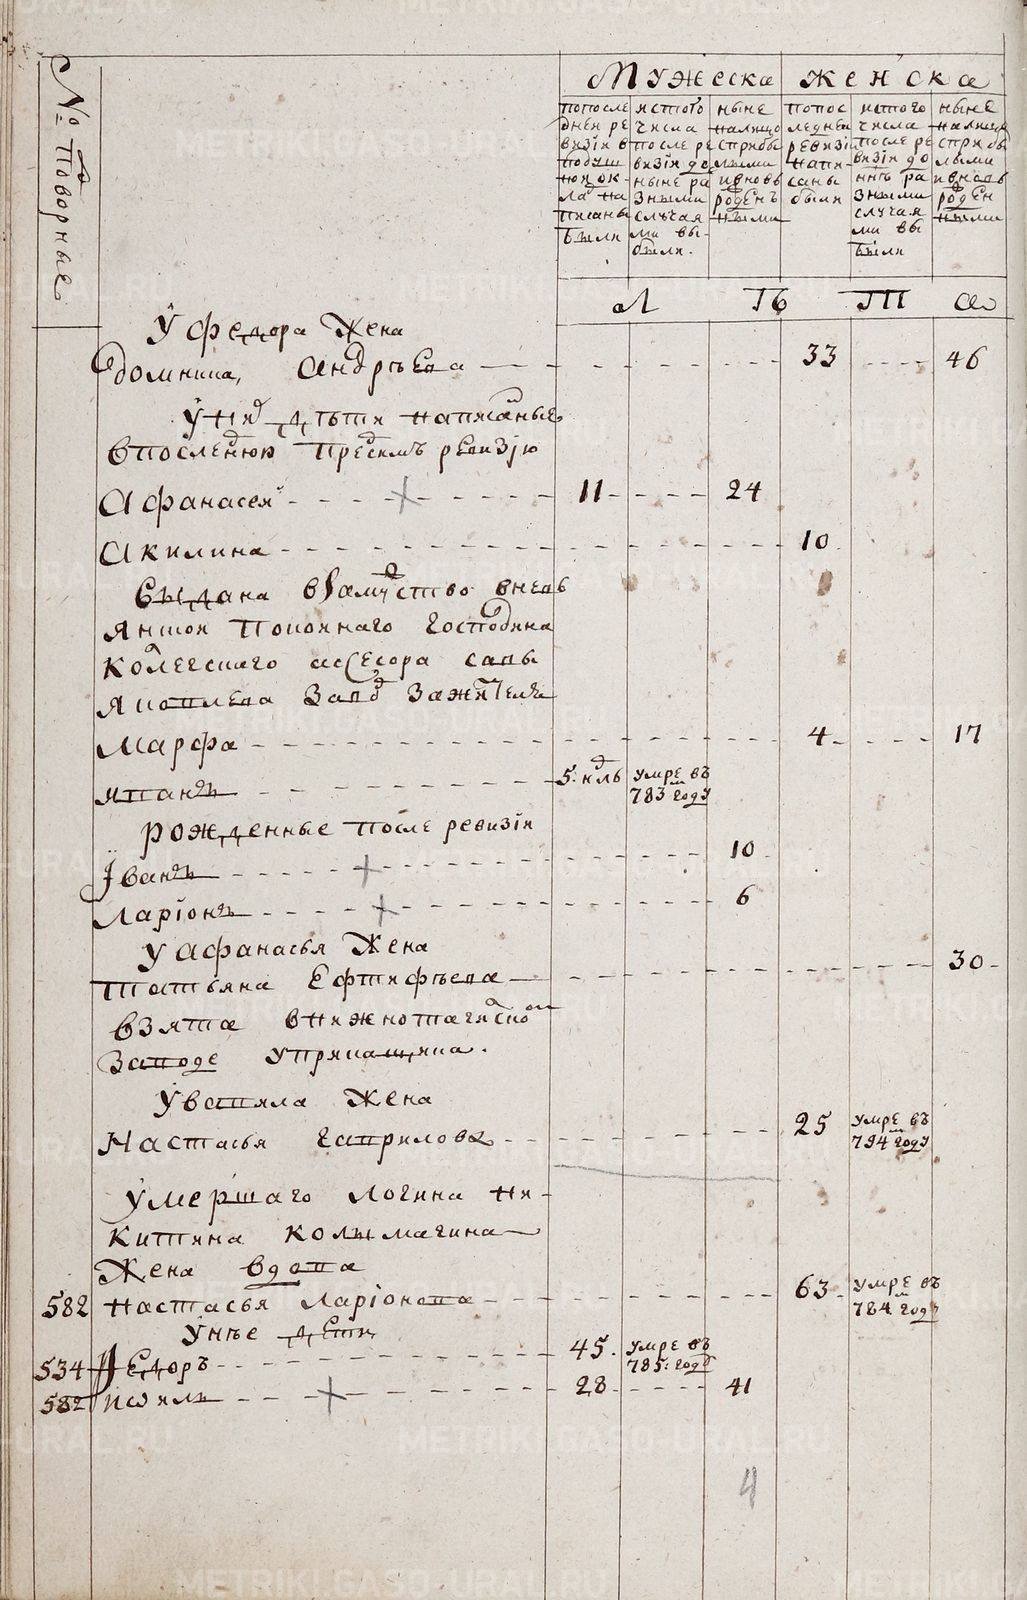 № подворные
Мужеска
женска
попоследней ревизiи в подушной оклад написаны были
истого числа после ревизiи до ныне разными случаями выбыли.
ныне налицо сприбылыми и вновь рожденными
попоследней ревизiи написаны были
истого числа после ревизiи до ныне разными случаями выбыли
ныне налицо сприбылыми и вновь рожденными
Л
Л
У федора Жена
домница, андрѣева 33 46
У них дѣти написаные
впоследнюю пред симъ ревизiю
Афанасей 11 24
акилина 10
выдана взамуство вневьянской покойнаго господина
колежскаго ассесора савы
яковлева завод зажителя
марфа 4 17
5. нль умре въ 783 году
рожденные после ревизiи
Iванъ 10
Ларiонъ 6
У афанасья Жена
татьяна Ефтифѣева 30
взята внижнотагилском
заводе
Жена
Настасья гаврилова 25 умре въ 794 году
Умершаго логина никитина колымагина
Жена вдова
582 настасья ларiонова 63 умре въ 784 году
У нѣе дети
534 Федоръ 45. умре въ 785: году
582 28 41
4
METRIKI.GASO-URAL.RU